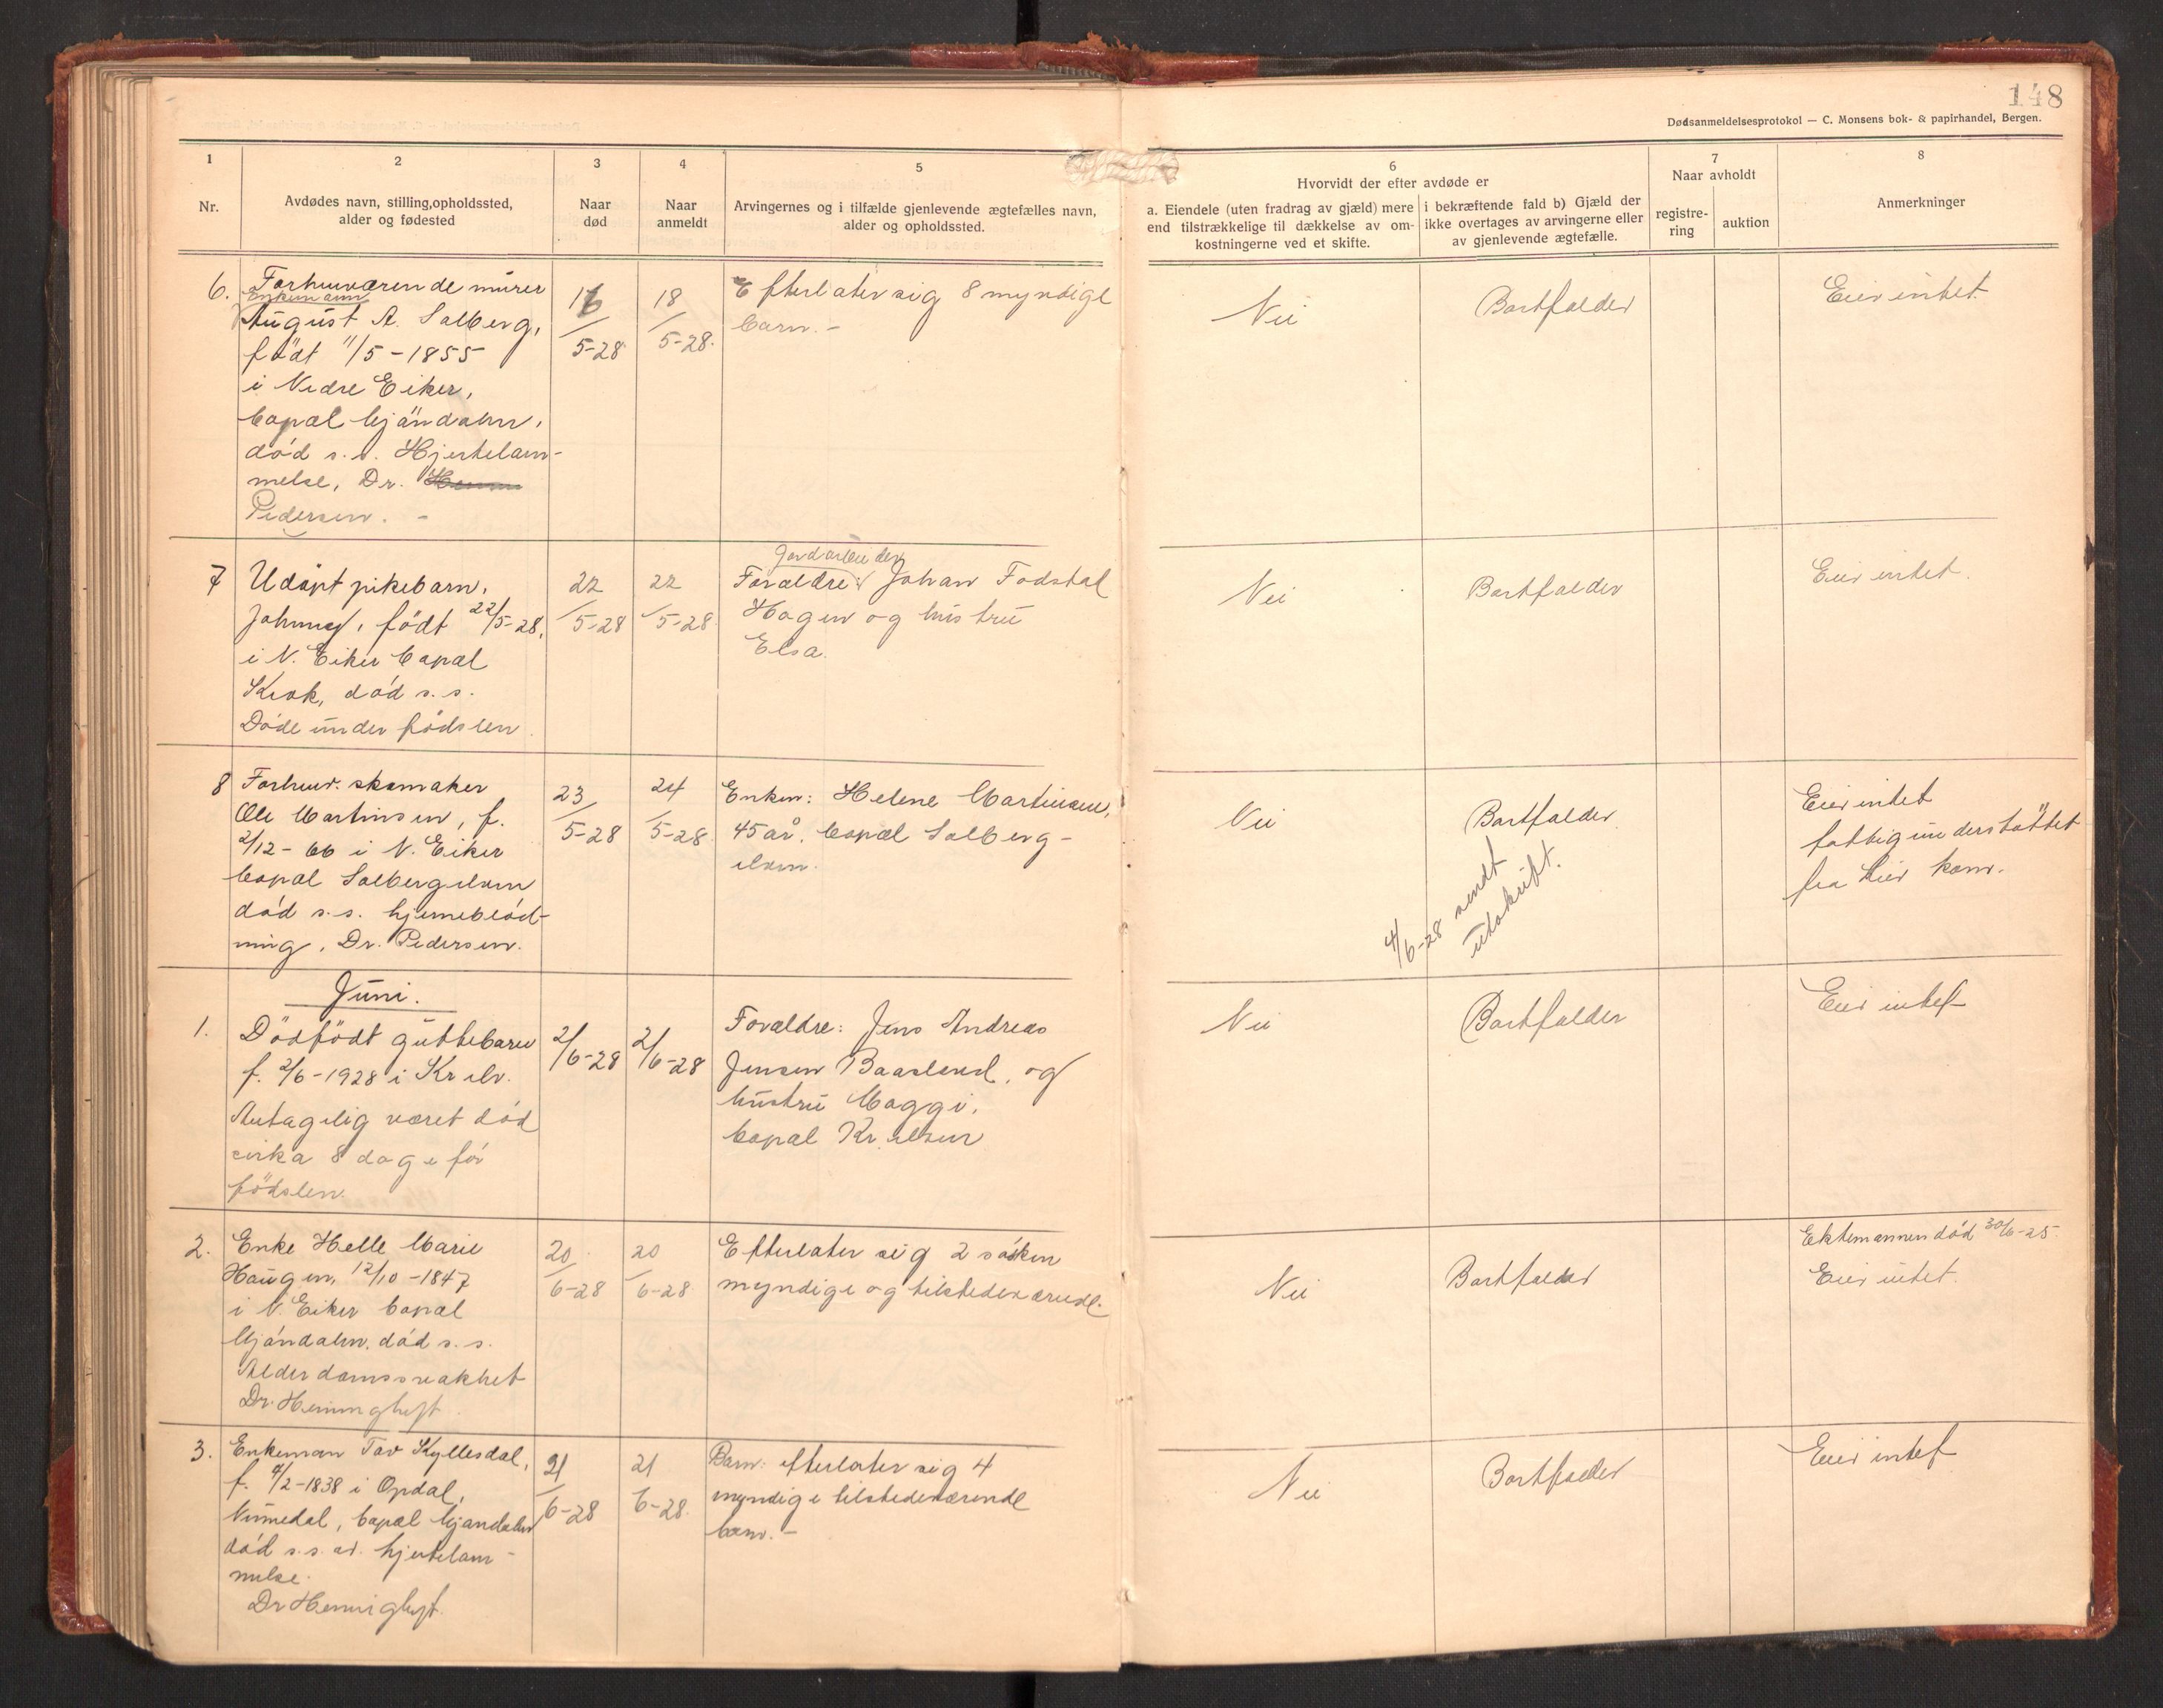 148
Dødsanmeldelsesprotokol — C. Monsens bok- & papirhandel, Bergen.
1
Nr.
2
Avdødes navn, stilling, opholdssted,
alder og fødested
3
Naar
død
4
Naar
anmeldt
5
Arvingernes og i tilfælde gjenlevende ægtefælles navn,
alder og opholdssted.
6
Hvorvidt der efter avdøde er
a. Eiendele (uten fradrag av gjæld) mere
end tilstrækkelige til dækkelse av om-
kostningerne ved et skifte.
i bekræftende fald b) Gjæld der
ikke overtages av arvingerne eller
av gjenlevende ægtefælle.
7
Naar avholdt
registre-
ring
auktion
8
Anmerkninger
6.
Forhuværende murer
Enkemann
August A. Solberg,
født 11/5-1855
i Nedre Eiker,
bopæl Mjøndalen,
død s. s. Hjertelam-
melse, Dr.
Pedersen. -
16/5-28
18/5-28.
Efterlater sig 8 myndige
barn. -
Nei
Bortfalder
Eier intet.
7
Udøpt pikebarn,
født 22/5-28,
i N. Eiker bopæl
Krok, død s. s.
Døde under fødslen.
22/5-28
22/5-28.
Jordarbeider
Forældre: Johan Fodstal
Hagen og hustru
Elsa.
Nei
Bortfalder
Eier intet.
8
Forhuv. skomaker
Ole Martinsen, f.
2/12-66 i N. Eiker
bopæl Solbergelven
død s.s. hjerneblød-
ning, Dr. Pedersen.
23/5-28
24/5-28
Enken: Helene Martinsen,
45 år, bopæl Solberg-
elven.
Nei
Bortfalder
4/6-28 sendt
utskrift.
Eier intet
fattigunderstøttet
fra Lier kom.
Juni.
1.
Dødfødt guttebarn
f. 2/6-1928 i Kr.elv.
Antagelig været død
cirka 8 dage før
fødslen.
2/6-28
2/6-28
Forældre: Jens Andreas
Jensen Baasland, og
hustru Maggi,
bopæl Kr.elven
Nei
Bortfalder
Eier intet
2.
Enke Helle Marie
Haugen, 12/10-1847
i N. Eiker bopæl
Mjøndalen, død s. s.
Alderdomssvakhet
Dr. Henninghoft.
20/6-28
20/6-28
Efterlater sig 2 søsken
myndige og tilstedeværende.
Nei
Bortfalder
Ektemannen død 30/6-25.
Eier intet.
3.
Enkeman Tov Kyllesdal,
f. 4/2-1838 i Opdal,
Numedal, bopæl Mjøndalen
død s.s. av. hjertelam-
melse.
Dr Henninghoft.
21/6-28
21
6-28.
Barn: efterlater sig 4
myndige tilstedeværende
barn. -
Nei
Bortfalder
Eier intet